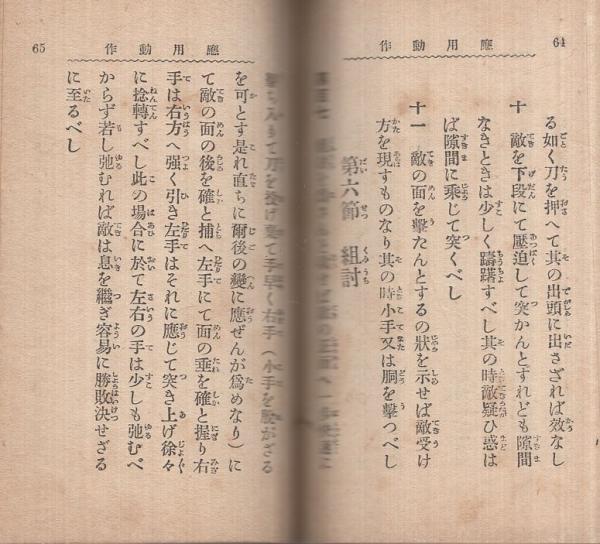 64
應用動作
る如く刀を押へて其の出頭に出さざれば效なし
十 敵を下段にて壓迫して突かんとすれども隙間
なきときは少しく躊躇すべし其の時敵疑ひ惑は
ば隙間に乘じて突くべし
十一 敵の面を擊たんとするの狀を示せば敵受け
方を現すものなり其の時小手又は胴を擊つべし
第六節 組討
手早く右手(小手を脫がざる
を可とす是れ直ちに爾後の變に應ぜんが爲めなり)に
て敵の面の後を確と捕へ左手にて面の垂を確と握り右
手は右方へ强く引き左手はそれに應じて突き上げ徐々
に捻轉すべし此の場合に於て左右の手は少しも弛むべ
からず若し弛むれば敵は息を繼ぎ容易に勝敗決せざる
に至るべし
應用動作
65